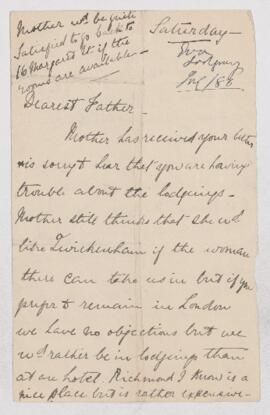 Mother wd. be quite
Satisfied to go back to
16 Margaret St. if the
rooms are available -
Saturday -
Lodgings
Dearest Father -
Mother has received your letter
& is sorry to hear that you are having
trouble about the lodgings -
Mother still thinks that she wd.
like Twickenham if the woman
there can take us in but if you
prefer to remain in London
we have no objections but we
wd. rather be in lodgings than
at an hotel. Richmond I know is a
nice place but is rather expensive -